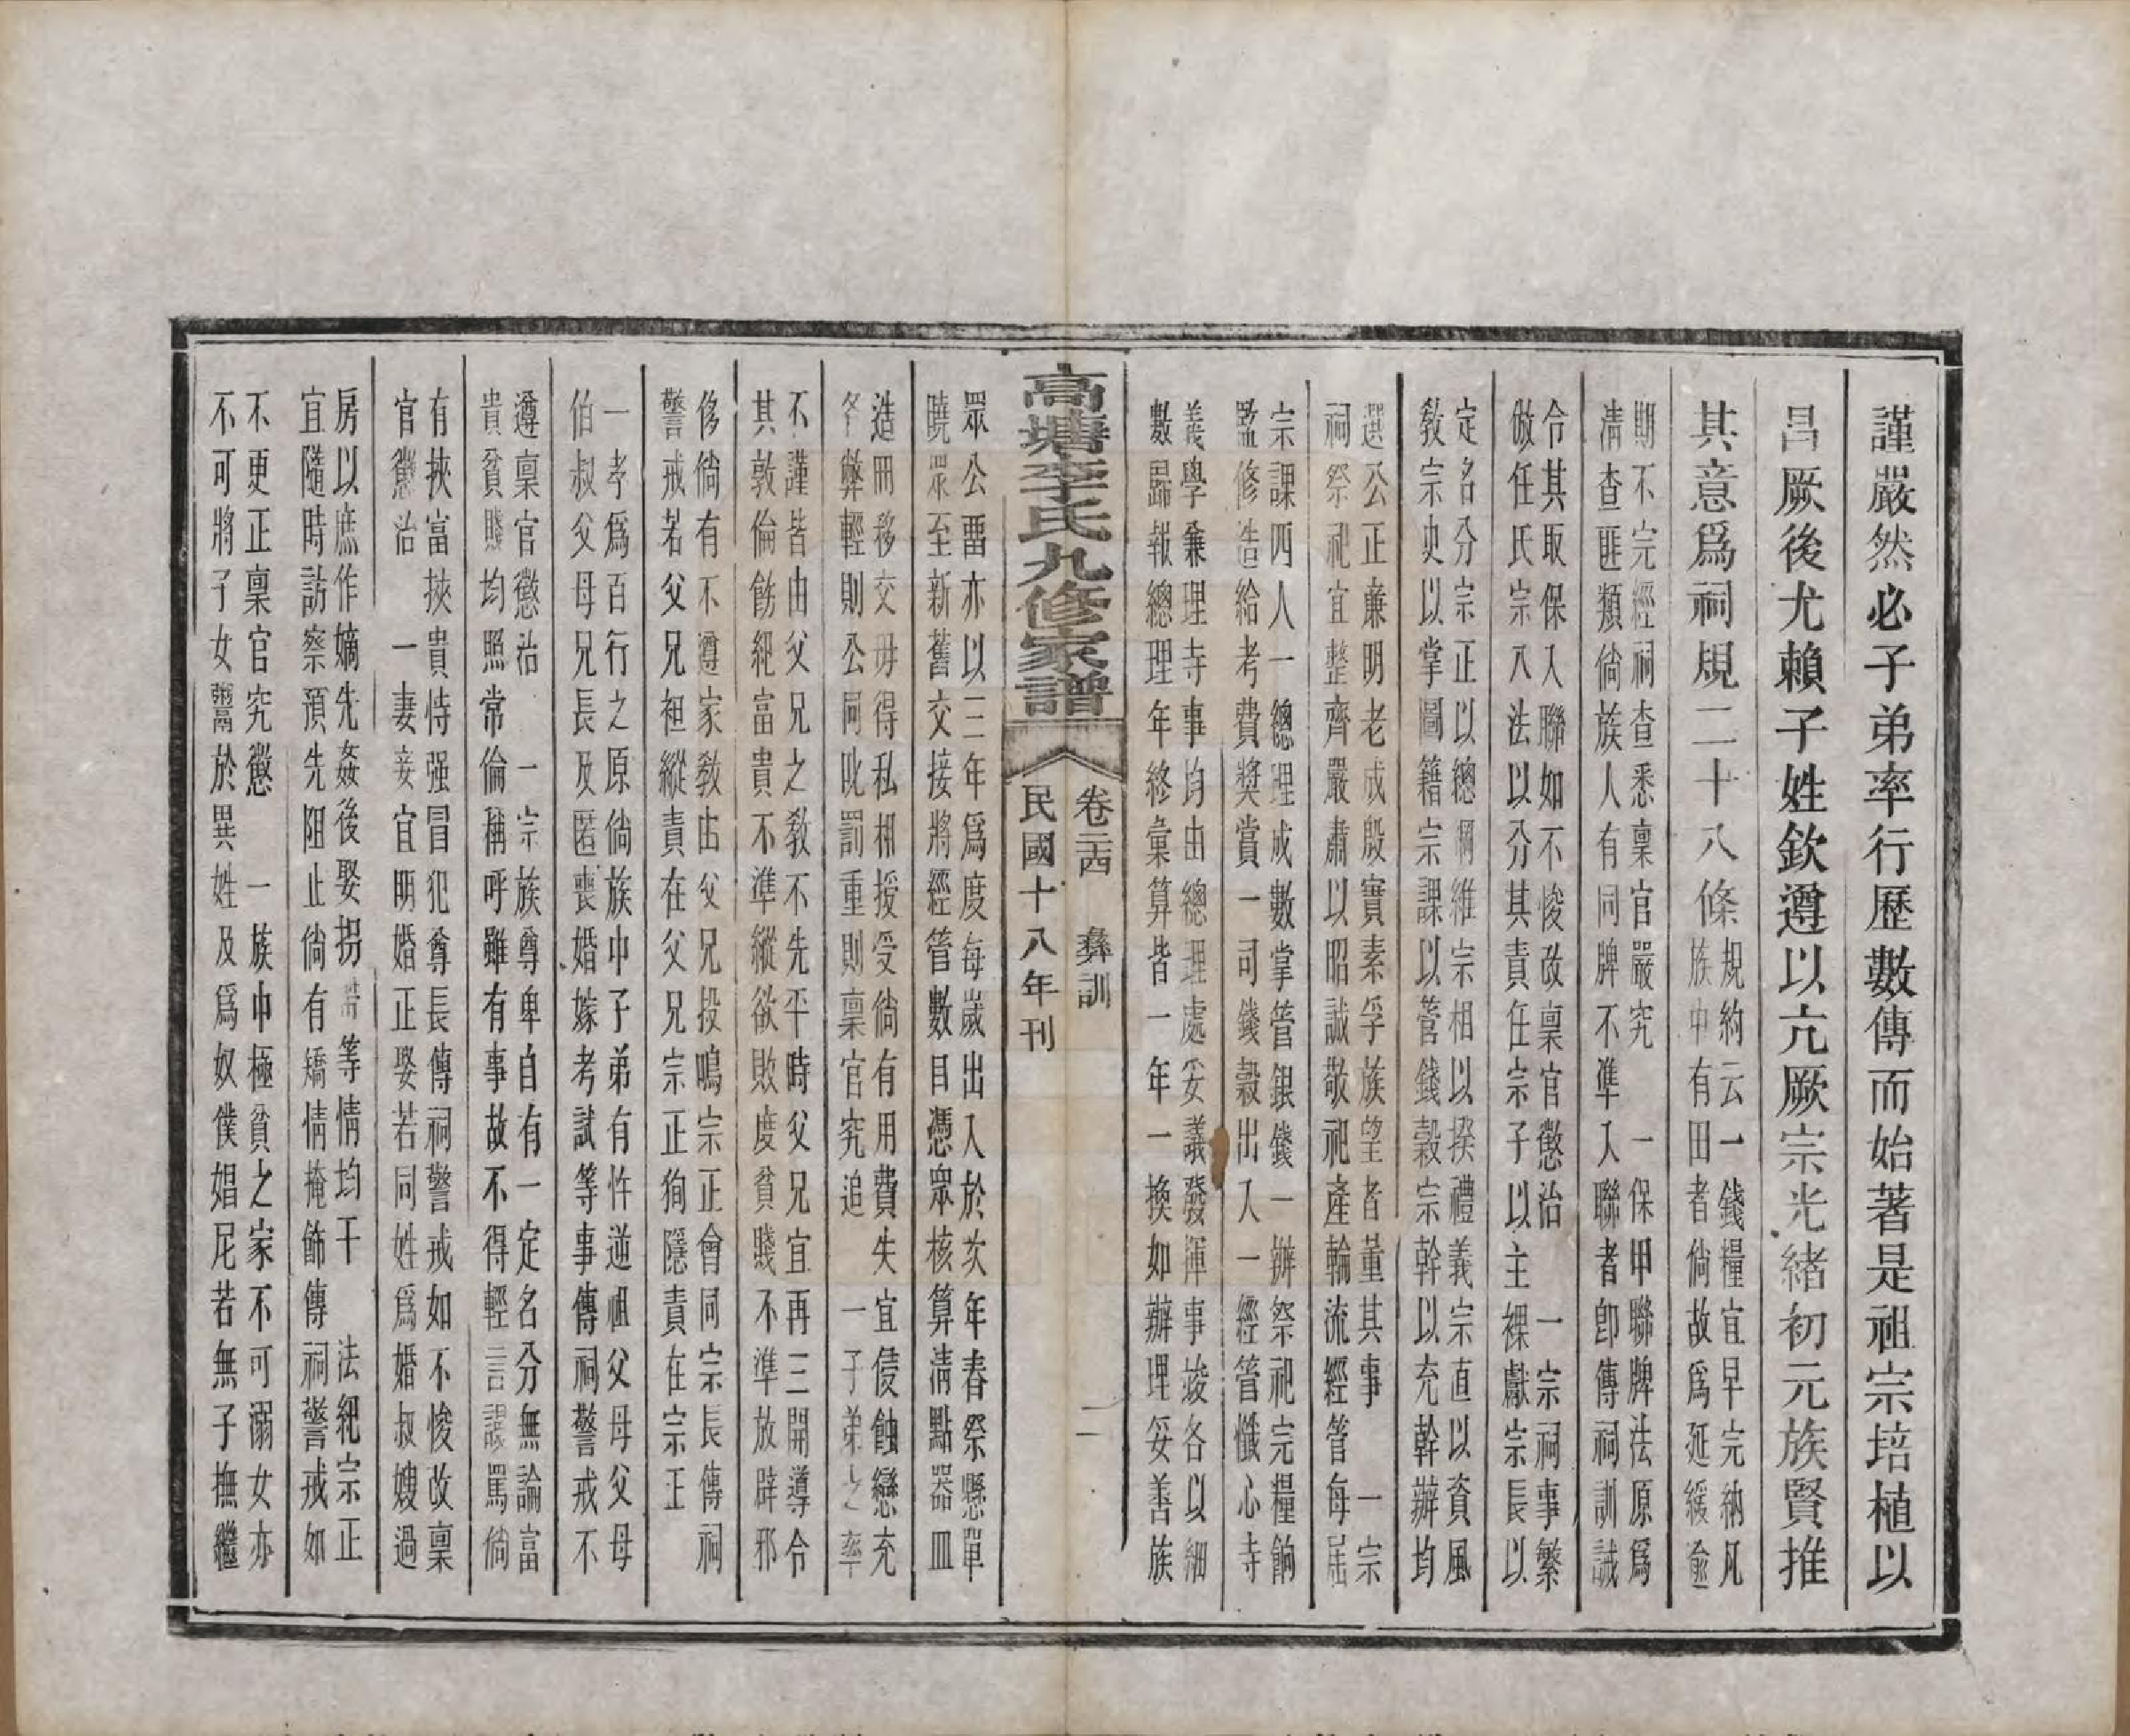 謹嚴然必子弟率行歷數傳而始著是祖宗培植以
昌厥後尤賴子姓欽遵以亢厥宗光緒初元族賢推
其意爲祠規二十八條
規約云一錢糧宜早完納凡
族中有田者倘故爲延緩逾
期不完經祠查悉稟官嚴究 一保甲聯牌法原爲
清查匪類倘族人有同牌不準入聯者卽傳祠訓誡
令其取保入聯如不悛改稟官懲治 一宗祠事繁
倣任氏宗八法以分其責任宗子以主祼獻宗長以
定名分宗正以總綱維宗相以揆禮義宗直以資風
敎宗史以掌圖籍宗課以管錢穀宗幹以充幹辦均
選公正亷明老成殷實素孚族望者董其事 一宗
祠祭祀宜整齊嚴肅以昭誠敬祀產輪流經管每屆
宗課四人一總理成數掌管銀錢一辦祭祀完糧餉
監修造給考費獎賞一司錢穀出入一經管懺心寺
義學兼理寺事均由總理處妥議發揮事竣各以細
數歸報總理年終彙算皆一年一換如辦理妥善族
高塘李氏九修家譜
卷二四 彝訓
二
民國十八年刊
眾公畱亦以三年爲度每歲出入於次年春祭懸單
曉眾至新舊交接將經管數目憑眾核算淸點器皿
造冊移交毋得私相授受倘有用費失宜侵蝕戀充
等弊輕則公同批罰重則稟官究追 一子弟之率
不謹皆由父兄之敎不先平時父兄宜再三開導令
其敦倫飭紀富貴不準縱欲敗度貧賤不準放辟邪
侈倘有不遵家敎由父兄投鳴宗正會同宗長傳祠
警戒若父兄袒縱責在父兄宗正徇隱責在宗正
一孝爲百行之原倘族中子弟有忤逆祖父母父母
伯叔父母兄長及匿喪婚嫁考試等事傳祠警戒不
遵稟官懲治 一宗族尊卑自有一定名分無論富
貴貧賤均照常倫稱呼雖有事故不得輕言謾罵倘
有挾富挾貴恃强冒犯尊長傳祠警戒如不悛改稟
官懲治 一妻妾宜明婚正娶若同姓爲婚叔嫂過
房以庶作嫡先姦後娶拐帶等情均干 法紀宗正
宜隨時訪察預先阻止倘有矯情掩飾傳祠警戒如
不更正稟官究懲 一族中極貧之家不可溺女亦
不可將子女鬻於異姓及爲奴僕娼尼若無子撫繼